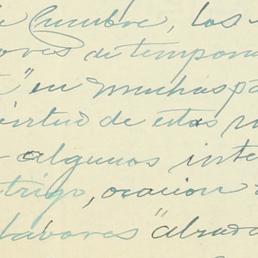 Cumbre, los
ores de tempora
" en muchas pa
virtud de estas
algunos inte
trigo, ocasion
labores "